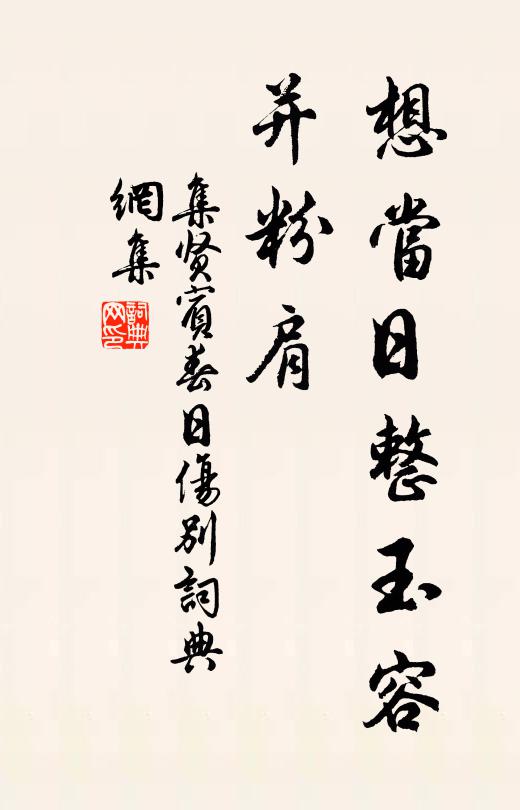 想當日整玉容
并粉肩
集賢賓春日傷別詞典
網集
詞典
网印